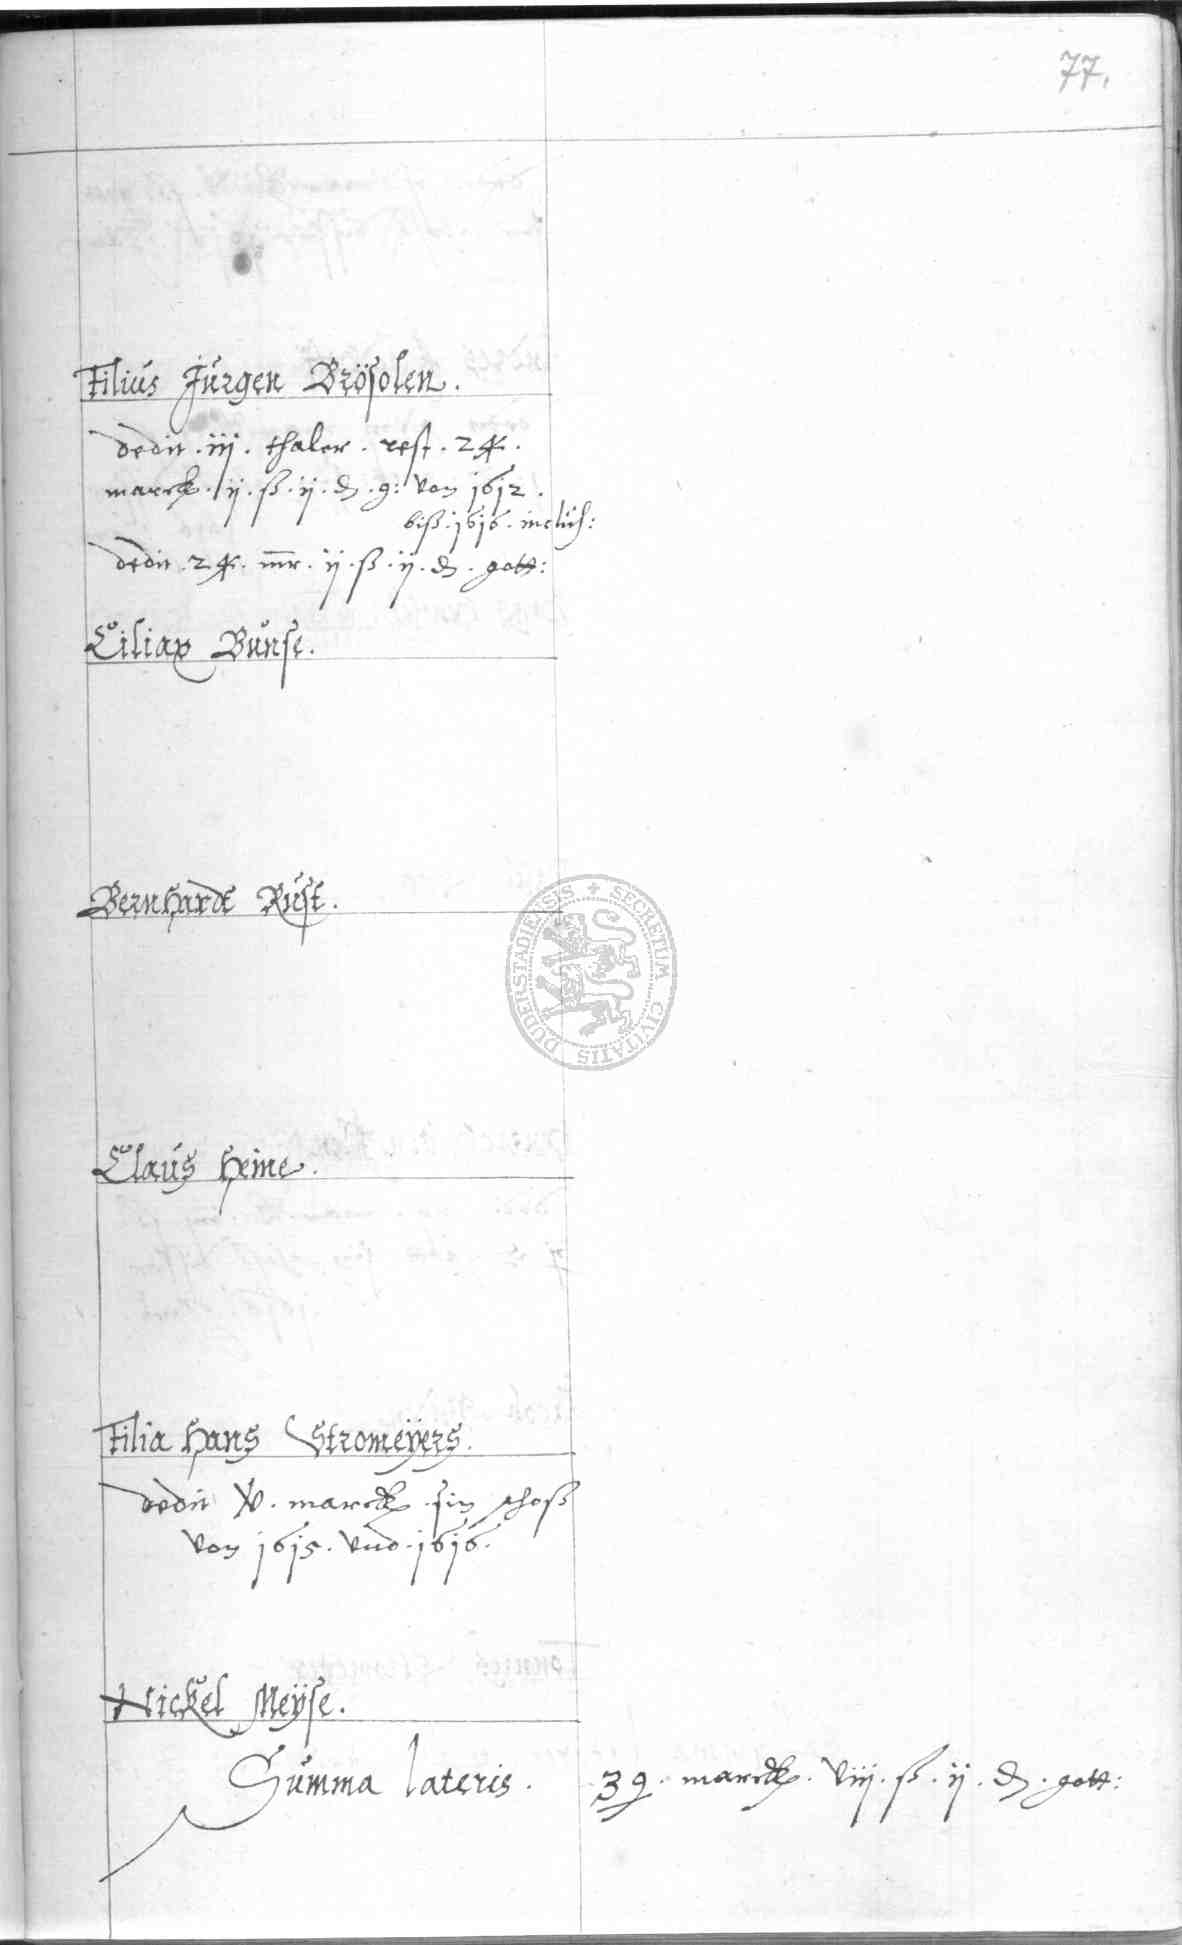 77.
Filius Jürgen Brösolen.
dedit . iij . thaler . rest . 24 .
marck . ij . ß . ij . d . g: von 1612 .
biß . 1616 . inclus:
dedit . 24 . mr . ij . ß . ij . d . gott:
Ciliax Bunse.
Bernhardt Rust.
Claus Heine.
Filia Hans Stromeÿers.
dedit xv . marck . ein schoß
von 1615 . vnd . 1616 .
Nickel Meÿse.
Summa lateris . 39 . marck . viij . ß . ij . d . gott:
SECRETUM CIVITATIS DUDERSTADIENSIS